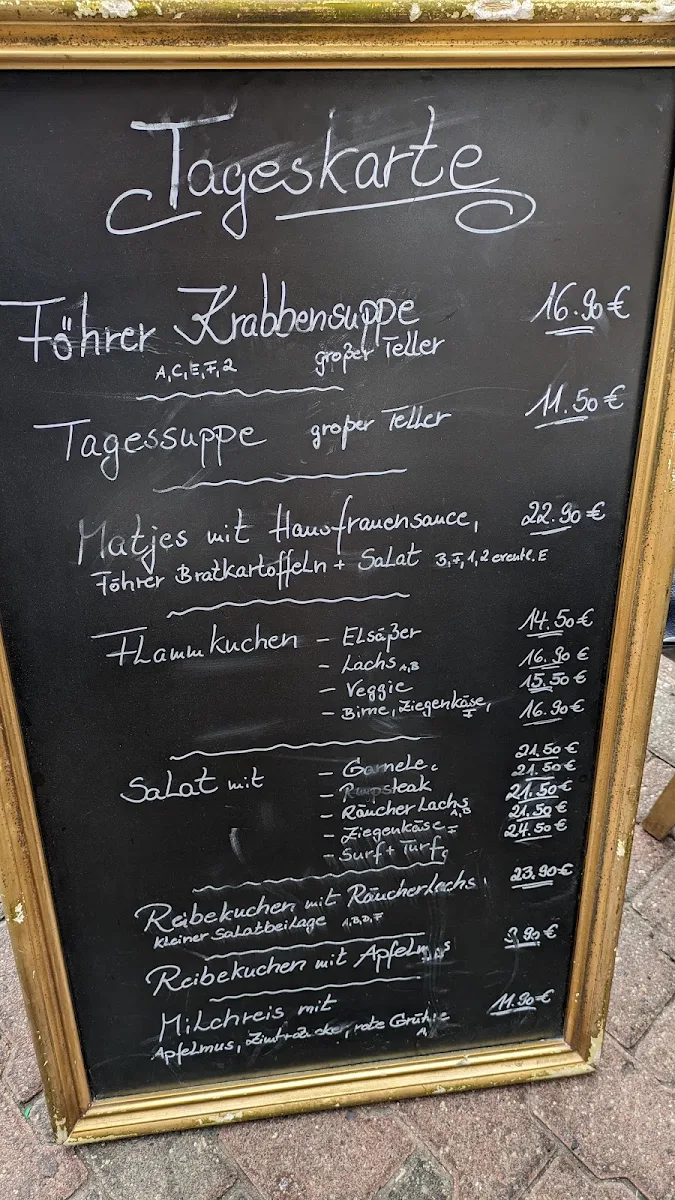 Tageskarte
Föhrer Krabbensuppe 16.90€
A,C,E,F,2 großer Teller
Tagessuppe großer Teller 11.50€
Matjes mit Hausfrauensauce, 22.90€
Föhrer Bratkartoffeln + Salat B,F,1,2 eventl. E
Flammkuchen - Elsäßer 14.50€
- Lachs A,B 16.90€
- Veggie 15.50€
- Birne, Ziegenkäse, F 16.90€
Salat mit - Garnele C 21.50€
- Rumpsteak 21.50€
- Räucher Lachs A,B 21.50€
- Ziegenkäse F 21.50€
- Surf + Turf C 24.50€
Reibekuchen mit Räucherlachs 23.90€
kleiner Salatbeilage
Reibekuchen mit Apfelmus 9.90€
Milchreis mit 11.90€
Apfelmus, Zimt+Zucker, rote Grütze A